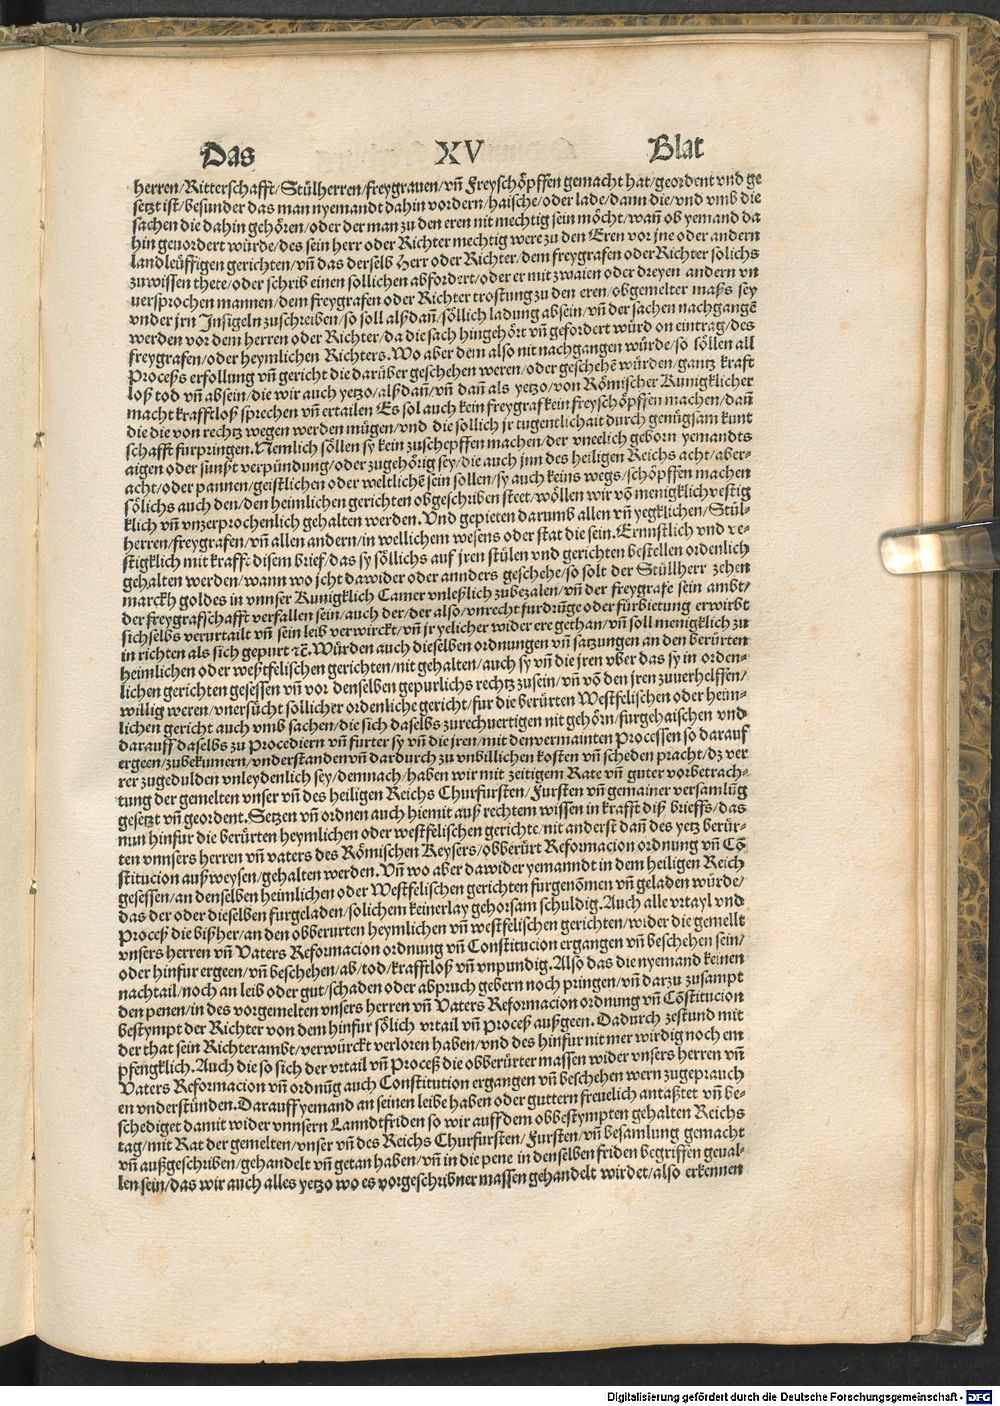 Das XV Blat
herren/Ritterschafft/Stülherren/freygrauen/vñ Freyschöpffen gemacht hat/geordent vnd ge
setzt ist/besunder das man nyemandt dahin vordern/haische/oder lade/dann die/vnd vmb die
sachen die dahin gehören/oder der man zu den eren nit mechtig sein möcht/wañ ob yemand da
hin geuordert würde/des sein herr oder Richter mechtig were zu den Eren vor jne oder andern
landleüffigen gerichten/vñ das derselb Herr oder Richter/dem freygrafen oder Richter solichs
zuwissen thete/oder schrib einen sollichen abfordert/oder er mit zwaien oder dreyen andern vn
uersprochen mannen/dem freygrafen oder Richter trostung zu den eren/obgemelter maß sey
vnder jrn Insigeln zuschreiben/so soll alßdañ/söllich ladung absein/vñ der sachen nachgangẽ
werden vor dem herren oder Richter/da die sach hingehört vñ gefordert würd on eintrag/des
freygrafen/oder heymlichen Richters. Wo aber dem also nit nachgangen würde/so söllen all
Proceß erfollung vñ gericht die darüber geschehen weren/oder geschehẽ würden/gantz krafft
loß tod vñ absein/die wir auch yetzo/alßdañ/vñ dañ als yetzo/von Römischer Kunigklicher
macht krafftloß sprechen vñ ertailen Es sol auch kein freygraf kein freyschöpffen machen/dañ
die die von rechtz wegen werden mügen/vnd die sollich jr tugentlichait durch genügsam kunt
schafft furpringen. Nemlich söllen sy kein zuschepffen machen/der vneelich geborn yemandts
aigen oder sunßt verpündung/oder zugehörig sey/die auch jnn des heiligen Reichs acht/aber-
acht/oder pannen/geistlichen oder weltlichẽ sein sollen/sy auch keins wegs/schöpffen machen
sölichs auch den/den heimlichen gerichten obgeschriben steet/wöllen wir võ menigklich vestig
klich vñ vnzerprochenlich gehalten werden. Vnd gepieten darumb allen vñ yegklichen/Stül-
herren/freygrafen/vñ allen andern/in wellichem wesens oder stat die sein. Ernnstlich vnd ve-
stigklich mit krafft disem brief/das sy söllichs auf jren stülen vnd gerichten bestellen ordenlich
gehalten werden/wann wo jcht dawider oder annders geschehe/so solt der Stüllherr zehen
marckh goldes in vnnser Kunigklich Camer vnleßlich zubezalen/vñ der freygrafe sein ambt/
der freygrafschafft verfallen sein/auch der/der also/vnrecht furdrũge oder fürbietung erwirbt
sichselbs verurtailt vñ sein leib verwirckt/vñ jr yelicher wider ere gethan/vñ soll menigklich zu
in richten als sich gepurt ꝛc̃. Würden auch dieselben ordnungen vñ satzungen an den berürten
heimlichen oder weßtfelischen gerichten/nit gehalten/auch sy vñ die jren vber das sy in orden-
lichen gerichten gesessen vñ vor denselben gepurlichs rechtz zusein/vñ võ den jren zuuerhelffen/
willig weren/vnersücht söllicher ordenliche gericht/fur die berürten Westfelischen oder heim-
lichen gericht auch vmb sachen/die sich daselbs zurechuertigen nit gehörn/furgehaischen vnd
darauff daselbs zu Procediern vñ furter sy vñ die jren/mit den vermainten Processen so darauf
ergeen/zubekumern/vnderstanden vñ dardurch zu vnbillichen kosten vñ scheden pracht/dz ver
rer zugedulden vnleydenlich sey/demnach/haben wir mit zeitigem Rate vñ guter vorbetrach-
tung der gemelten vnser vñ des heiligen Reichs Churfursten/Fursten vñ gemainer versamlũg
gesetzt vñ geordent. Setzen vñ ordnen auch hiemit auß rechtem wissen in krafft diß brieffs/das
nun hinfur die berürten heymlichen oder westfelischen gerichte/nit anderst dañ des yetz berür-
ten vnnsers herren vñ vaters des Römischen Keysers/obberürt Reformacion ordnung vñ Cõ
stitucion außweysen/gehalten werden. Vñ wo aber dawider yemanndt in dem heiligen Reich
gesessen/an denselben heimlichen oder Westfelischen gerichten furgenõmen vñ geladen würde/
das der oder dieselben furgeladen/solichem keinerlay gehorsam schuldig. Auch alle vrtayl vnd
Proceß die bißher/an den obberurten heymlichen vñ westfelischen gerichten/wider die gemelte
vnsers herren vñ Vaters Reformacion ordnung vñ Constitucion ergangen vñ beschehen sein/
oder hinfur ergeen/vñ beschehen/ab/tod/krafftloß vñ vnpundig. Also das die nyemand keinen
nachtail/noch an leib oder gut/schaden oder abpruch gebern noch pringen/vñ darzu zusampt
den penen/in des vorgemelten vnsers herren vñ Vaters Reformacion ordnung vñ Cõstitucion
bestympt der Richter von dem hinfur sölich vrtail vñ proceß außgeen. Dadurch zestund mit
der that sein Richterambt/verwürckt verloren haben/vnd des hinfur nit mer wirdig noch em
pfengklich. Auch die so sich der vrtail vñ Proceß die obberürter massen wider vnsers herren vñ
Vaters Reformacion vñ ordnũg auch Constitution ergangen vñ beschehen wern zugeprauch
en vnderstünden. Darauff yemand an seinen leibe haben oder guttern freuelich antaßtet vñ be-
schediget damit wider vnnsern Lanndtfriden so wir auff dem obbestympten gehalten Reichs
tag/mit Rat der gemelten/vnser vñ des Reichs Churfursten/Fursten/vñ besamlung gemacht
vñ außgeschriben/gehandelt vñ getan haben/vñ in die pene in denselben friden begriffen geual-
len sein/das wir auch alles yetzo wo es vorgeschribner massen gehandelt wirdet/also erkennen
Digitalisierung gefördert durch die Deutsche Forschungsgemeinschaft - DFG